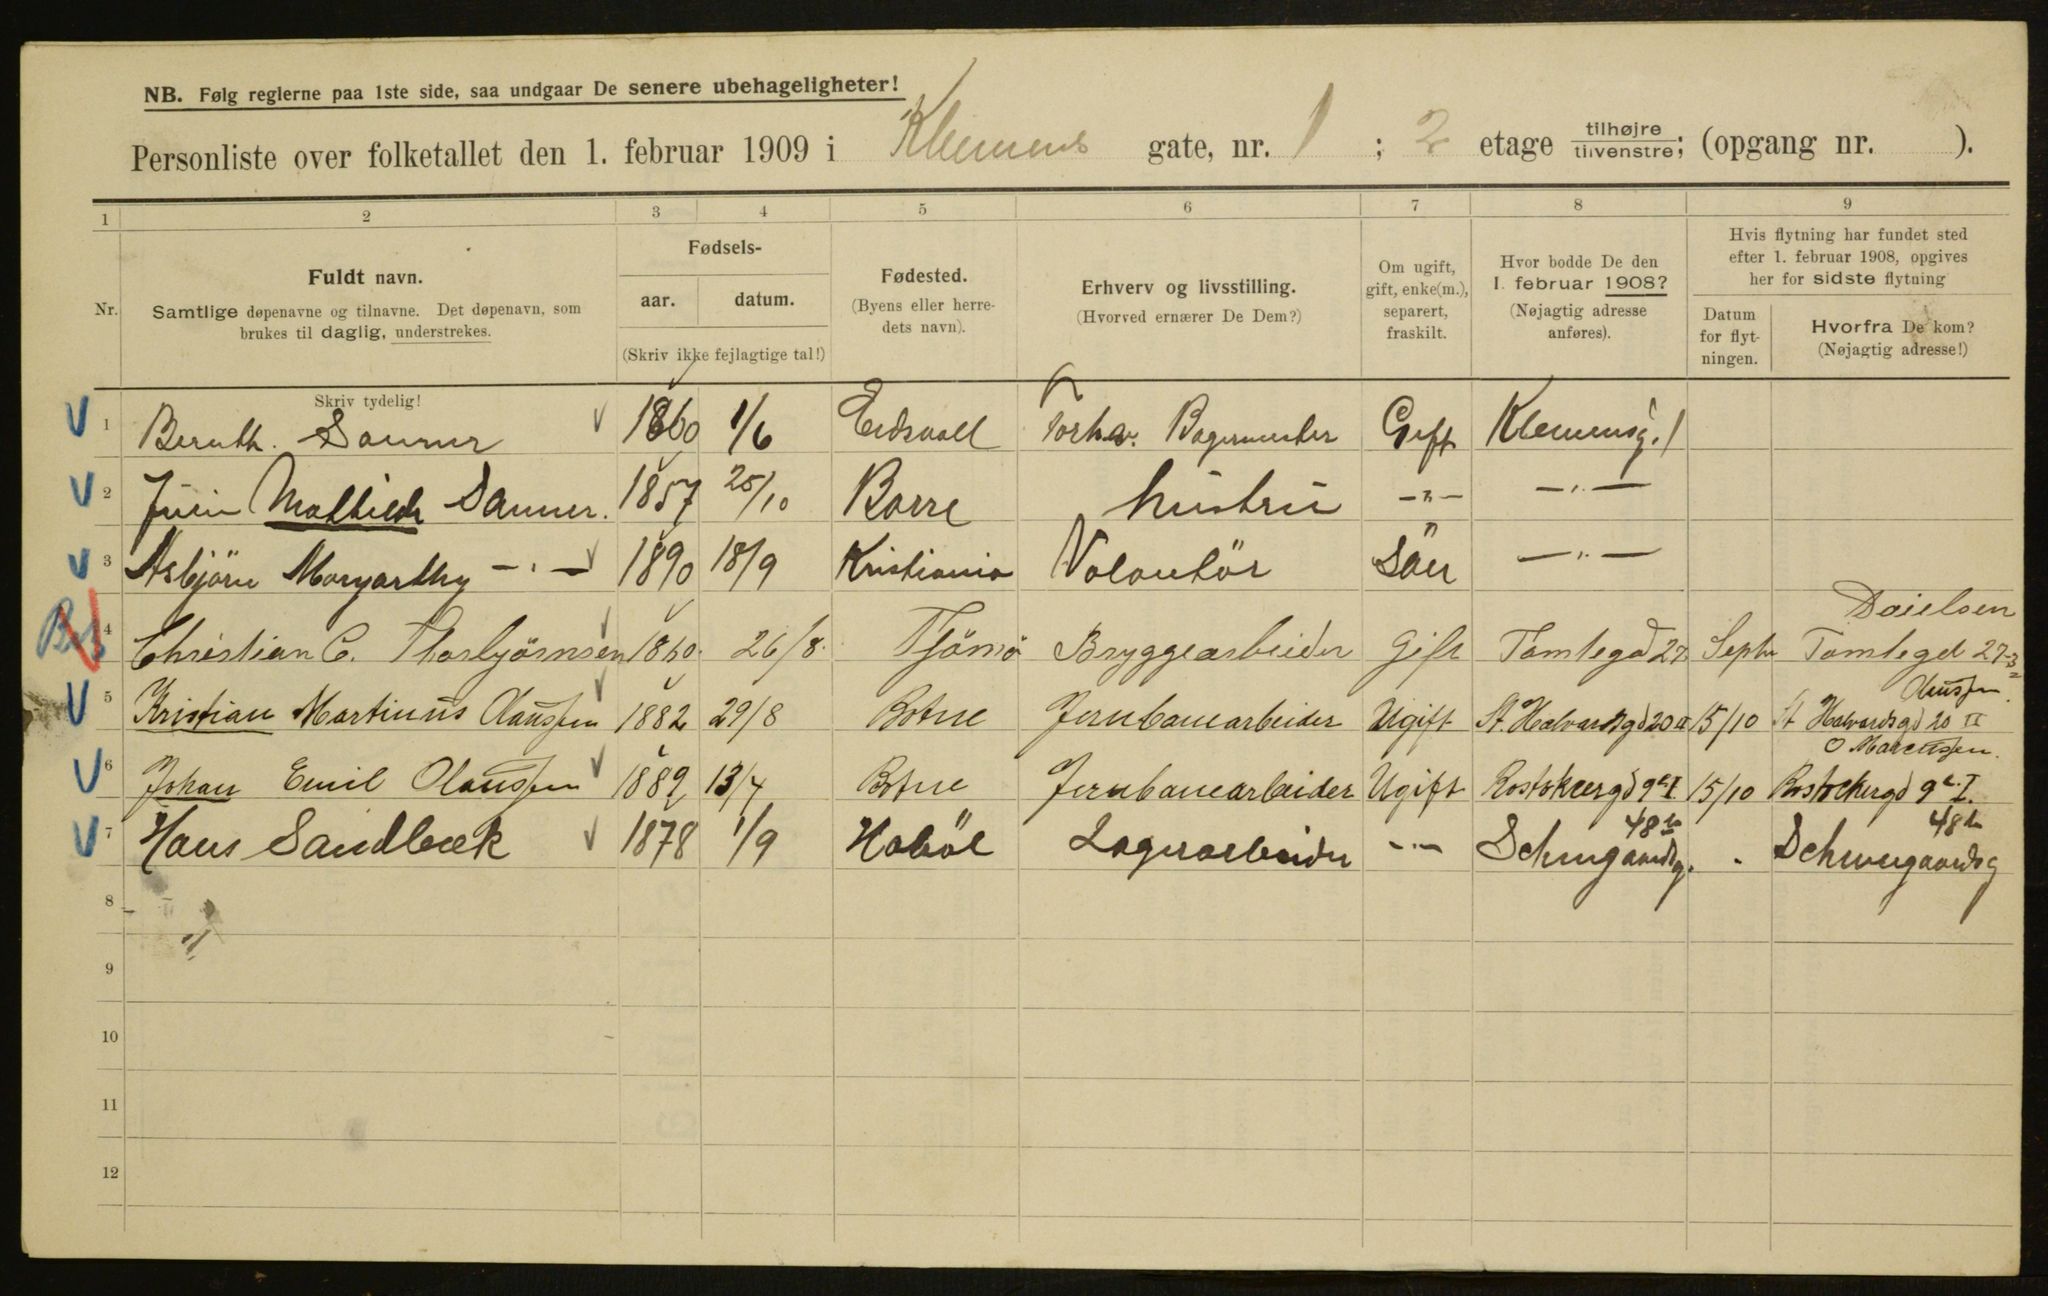 NB. Følg reglerne paa 1ste side, saa undgaar De senere ubehageligheter!
Personliste over folketallet den 1. februar 1909 i Klemens gate, nr. 1 ; 2 etage tilhøjre tilvenstre; (opgang nr. ).
1 2 3 4 5 6 7 8 9
Nr.
Fuldt navn.
Samtlige døpenavne og tilnavne. Det døpenavn, som
brukes til daglig, understrekes.
Skriv tydelig!
Fødsels-
aar. datum.
(Skriv ikke fejlagtige tal!)
Fødested.
(Byens eller herre-
dets navn).
Erhverv og livsstilling.
(Hvorved ernærer De Dem?)
Om ugift,
gift, enke(m.),
separert,
fraskilt.
Hvor bodde De den
1. februar 1908?
(Nøjagtig adresse
anføres).
Hvis flytning har fundet sted
efter 1. februar 1908, opgives
her for sidste flytning
Datum
for flyt-
ningen.
Hvorfra De kom?
(Nøjagtig adresse!)
1 Bernth. 1860 1/6 Eidsvoll Forhv. Bagermester Gift Klemensg. 1
2 Mathilde 1857 25/10 Borre hustru -"- -"-
3 Asbjörn -"- 1890 18/9 Kristiania Volontör Sön -"-
4 Christian C. Thorbjörnsen 1860. 26/8. Tjömö Bryggearbeider Gift Tomtegd 27 Septr Tomtegd 27-3
5 Kristian Martinus Olaussen 1882 29/8 Botne Jernbanearbeider Ugift St. Halvardsgd 20 II 15/10 St Halvardsgd 20 II Olaussen.
6 Johan Emil Olaussen 1889 13/4 Botne Jernbanearbeider Ugift Rostokergd 9 a I. 15/10 Rostockergd 9 a I. O Marenssen.
7 Hans Sandbæk 1878 1/9 Hoböl Lagerarbeider -"- 48 Schweigaardsg. 48 Schweigaardsg
8
9
10
11
12